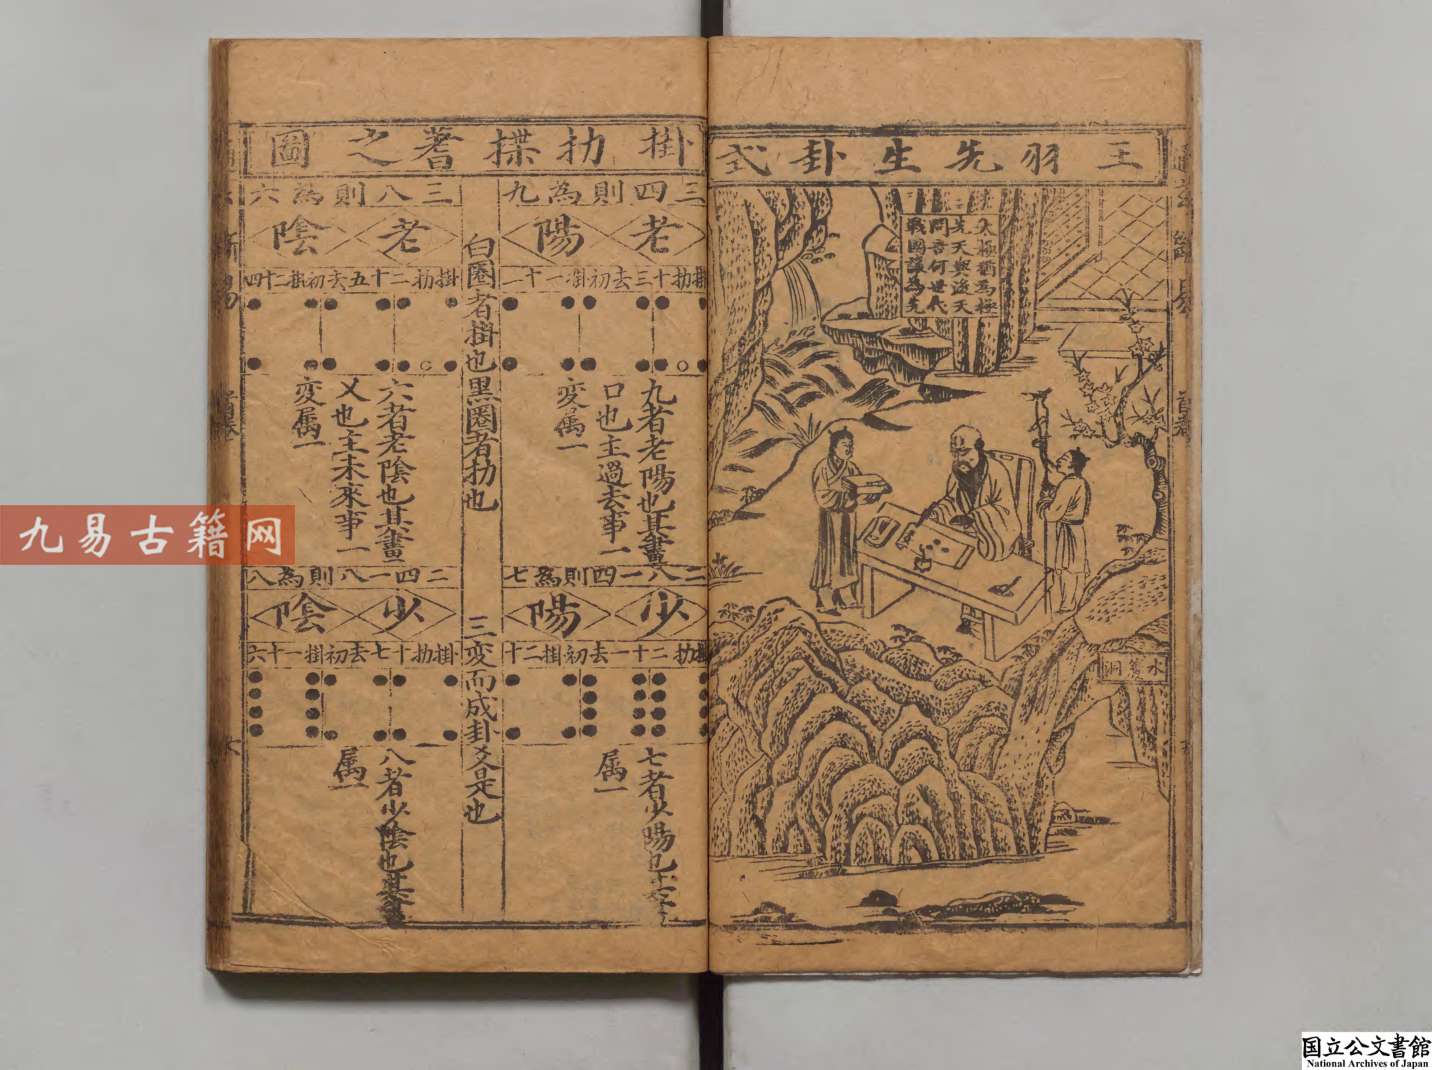 王羽先生卦式
太極肖爲極
先天與後天
問言何世民
戰國謙爲先
水簾洞
掛扐揲蓍之圖
三四則為九
老陽
掛扐十三去初掛一十二
九者老陽也其畫
口也主過去事一
変属一
二八一四則為七
少陽
掛扐二十一去初掛二十
七者少陽也其畫
属一
白圈者掛也黑圈者扐也
三変而成卦爻是也
三八則為六
老陰
掛扐二十五去初掛二十四
六者老陰也其畫
乂也主未來事一
変属一
二四一八則為八
少陰
掛扐十七去初掛一十六
八者少陰也其畫
属一
九易古籍网
国立公文書館
National Archives of Japan